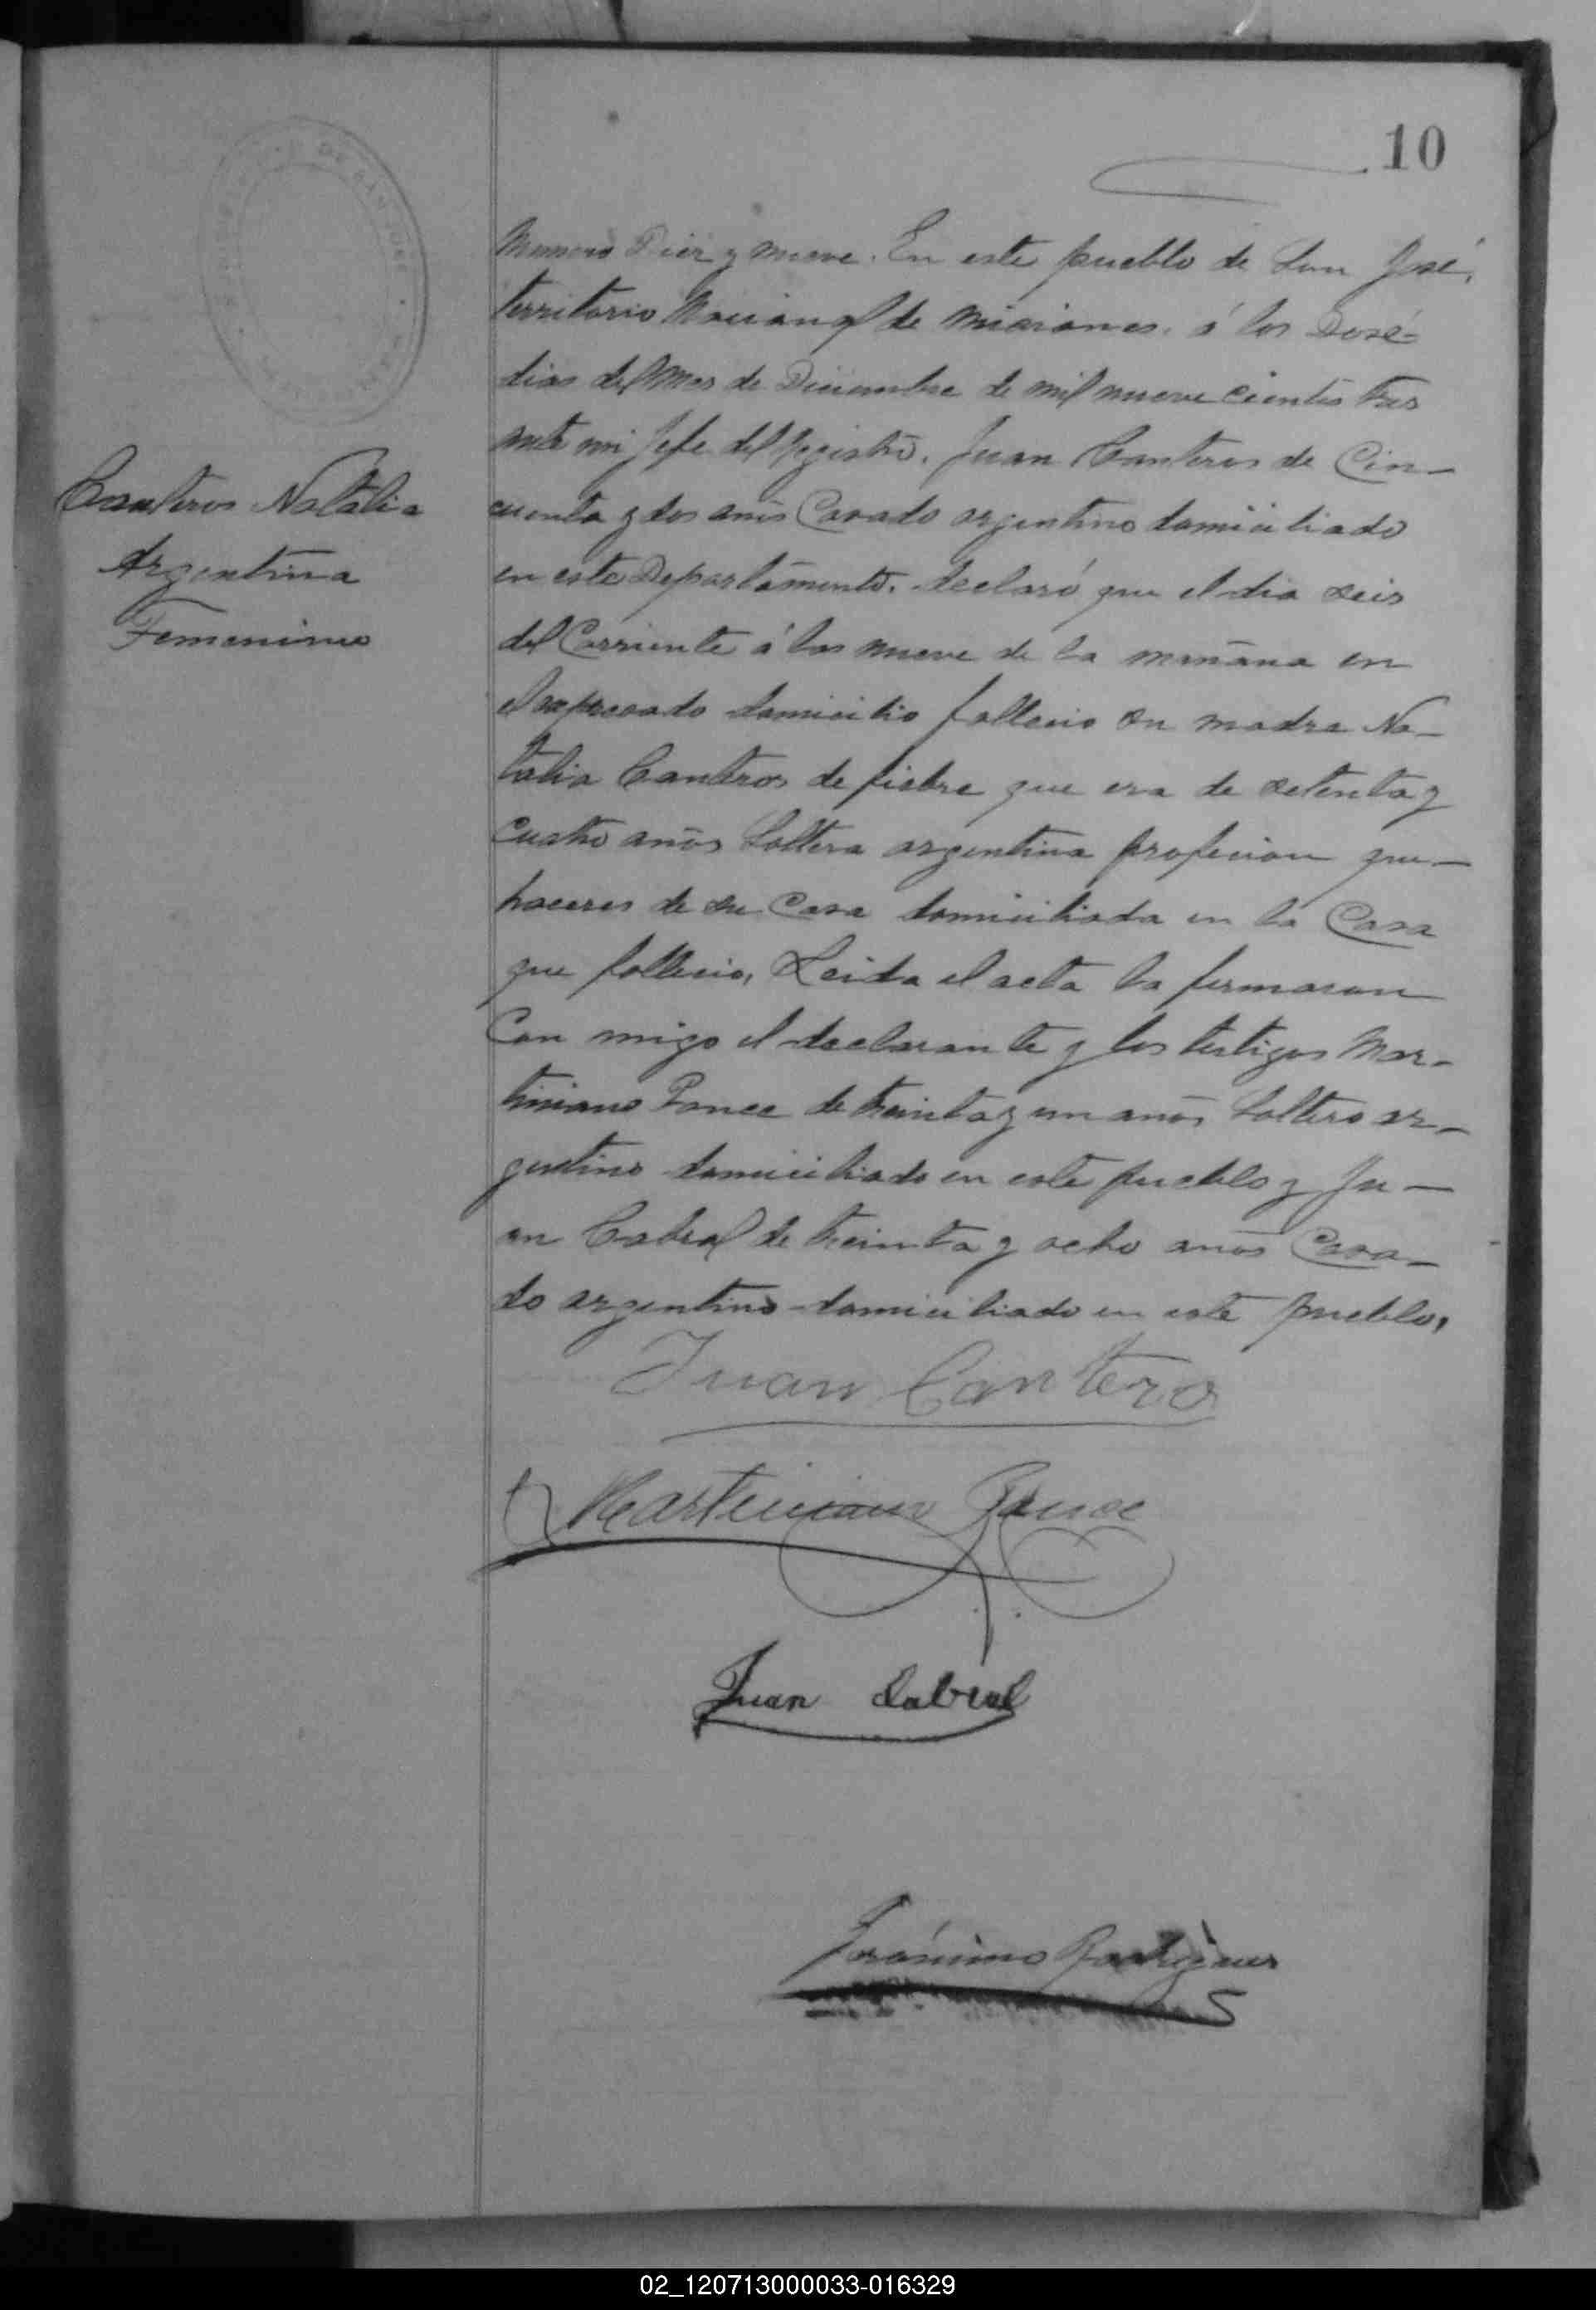 10
Numero Diez y nueve. En este pueblo de San José,
territorio Nacional de Misiones. á los Dosé
dias del Mes de Diciembre de mil nueve cientos tres
ante mi Jefe del Registro. Juan Canteros de Cin-
cuenta y dos años Casado argentino domiciliado
en este Departamento. declaró que el dia seis
del Corriente á las nueve de la mañana en
el expresado domicilio fallecio su madre Na-
talia Canteros de fiebre que era de setenta y
cuatro años Soltera argentina profecion que-
haceres de su Casa domiciliada en la Casa
que fallecio, Leida el acta la firmaron
Con migo el declarante y los testigos Mar-
tiniano Ponce de treinta y un años Soltero ar-
gentino domiciliado en este pueblo y Ju-
an Cabral de treinta y ocho años Casa-
do argentino domiciliado en este pueblo,
Canteros Natalia
Argentina
Femenino
Juan Cantero
Martiniano Ponce
Juan Cabral
Jerónimo Rodriguez
02_120713000033-016329